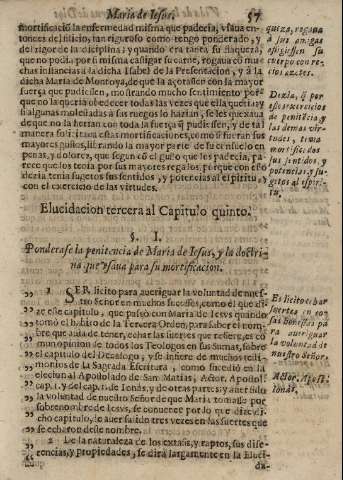 Maria de Iesus. 57
mortificasse la enfermedad misma que padecia, y sauaen-
tonces de silicio, tan riguroso como tengo ponderado, y
del rigor de la diciplina; y quando era tanta su flaqueza,
que no podia por si misma castigar su carne, rogaua có mu
chas instancias a la dicha Isabel de la Presentacion, y à la
dicha Maria de Montoya, de que la açotassen con la mayor
fuerça que pudiessen, mostrando mucho sentimiento por-
que no la queria obedecer todas las vezes que ella queria: y
si algunas moleidadas a sus ruegos lo hazian, se les quexaua
de que no la herian con toda la fuerça q̃ pudiessen, y de tal
manera solicitaua estas mortificaciones, como si fueran sus
mayores gustos, librando la mayor parte de su consuelo en
penas, y dolores, que segun có el gusto que les padecia, pa-
rece que los tenia por sus mayores regalos, porque con esso
tenia sugetos sus sentidos, y potencias al espiritu,
con el exercicio de las virtudes.
quiza, rogaua
a sus amigas
açotassen su
cuerpo con re-
zios açotes.
Dezia, q̃ por
essos exercicios
de penitẽcia y
las demas vir-
tudes, tenia
mortificados
sus sentidos, y
potencias, y su-
getos al espiri-
tu.
Elucidacion tercera al Capitulo quinto.
§. I.
Ponderase la penitencia de Maria de Iesus, y la doctri-
na que vsaua para su mortificacion.
1 SER licito para aueriguar la voluntad de nues-
tro Señor en muchos sucessos, como el que di-
ze este capitulo, que passò con Maria de Iesus quando
tomò el habito de la Tercera Orden, para saber el nom-
bre que auia de tener, echar las suertes que refiere, es co-
mun opinion de todos los Teologos en sus sumas, sobre
el capitulo del Decalogo, y se infiere de muchos testi-
monios de la Sagrada Escritura, como sucediò en la
eleccion al Apostolado de San Matias, Actor. Apostol.
cap. 1. y del cap. 1. de Ionàs, y de otras partes: y assi ser esta
la voluntad de nuestro Señor de que Maria tomasse por
sobrenombre de Iesus, se conuence por lo que dize di-
cho capitulo, de auer salido tres vezes en las suertes que
se echaron deste nombre.
2 De la naturaleza de los extasis, y raptos, sus dife-
rencias, y propiedades, se dirà largamente en la Eluci-
da-
Es licito echar
suertes en co-
sas honestas pa
ra aueriguar
la voluntad de
nuestro Señor.
Actor. Apost.
Ionas.